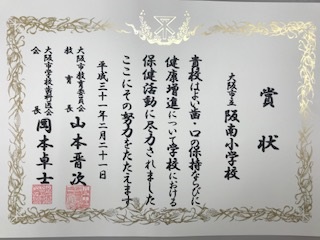 賞状
大阪市立 阪南小学校
貴校はよい歯・口の保持ならびに
健康増進について学校における
保健活動に尽力されました
ここにその努力をたたえます
平成三十一年二月二十一日
大阪市教育委員会
教育長 山本晋次
大阪市学校歯科医会
会長 岡本卓士